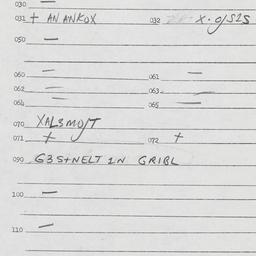 030 —
031 + ANANKOX 032 X.g/S2S
050 —
060 — 061 —
062 — 063 —
064 — 065 —
070 XAL3MO/T
071 + 072 +
090 G3S+NELT IN GRIBL
100 —
110 —